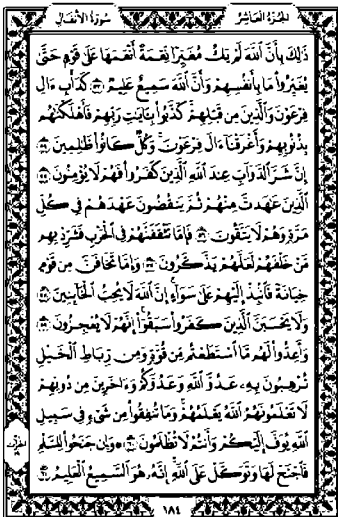 الجزء العاشر
سورة الأنفال
ذَٰلِكَ بِأَنَّ ٱللَّهَ لَمْ يَكُ مُغَيِّرًا نِّعْمَةً أَنْعَمَهَا عَلَىٰ قَوْمٍ حَتَّىٰ
يُغَيِّرُوا۟ مَا بِأَنفُسِهِمْ وَأَنَّ ٱللَّهَ سَمِيعٌ عَلِيمٌ ٥٣ كَدَأْبِ ءَالِ
فِرْعَوْنَ وَٱلَّذِينَ مِن قَبْلِهِمْ كَذَّبُوا۟ بِـَٔايَـٰتِ رَبِّهِمْ فَأَهْلَكْنَـٰهُم
بِذُنُوبِهِمْ وَأَغْرَقْنَآ ءَالَ فِرْعَوْنَ وَكُلٌّ كَانُوا۟ ظَـٰلِمِينَ ٥٤
إِنَّ شَرَّ ٱلدَّوَآبِّ عِندَ ٱللَّهِ ٱلَّذِينَ كَفَرُوا۟ فَهُمْ لَا يُؤْمِنُونَ ٥٥
ٱلَّذِينَ عَـٰهَدتَّ مِنْهُمْ ثُمَّ يَنقُضُونَ عَهْدَهُمْ فِى كُلِّ
مَرَّةٍ وَهُمْ لَا يَتَّقُونَ ٥٦ فَإِمَّا تَثْقَفَنَّهُمْ فِى ٱلْحَرْبِ فَشَرِّدْ بِهِم
مَّنْ خَلْفَهُمْ لَعَلَّهُمْ يَذَّكَّرُونَ ٥٧ وَإِمَّا تَخَافَنَّ مِن قَوْمٍ
خِيَانَةً فَٱنۢبِذْ إِلَيْهِمْ عَلَىٰ سَوَآءٍ إِنَّ ٱللَّهَ لَا يُحِبُّ ٱلْخَآئِنِينَ ٥٨
وَلَا يَحْسَبَنَّ ٱلَّذِينَ كَفَرُوا۟ سَبَقُوٓا۟ إِنَّهُمْ لَا يُعْجِزُونَ ٥٩
وَأَعِدُّوا۟ لَهُم مَّا ٱسْتَطَعْتُم مِّن قُوَّةٍ وَمِن رِّبَاطِ ٱلْخَيْلِ
تُرْهِبُونَ بِهِۦ عَدُوَّ ٱللَّهِ وَعَدُوَّكُمْ وَءَاخَرِينَ مِن دُونِهِمْ
لَا تَعْلَمُونَهُمُ ٱللَّهُ يَعْلَمُهُمْ وَمَا تُنفِقُوا۟ مِن شَىْءٍ فِى سَبِيلِ
ٱللَّهِ يُوَفَّ إِلَيْكُمْ وَأَنتُمْ لَا تُظْلَمُونَ ٦٠ ۞ وَإِن جَنَحُوا۟ لِلسَّلْمِ
فَٱجْنَحْ لَهَا وَتَوَكَّلْ عَلَى ٱللَّهِ إِنَّهُۥ هُوَ ٱلسَّمِيعُ ٱلْعَلِيمُ ٦١
١٨٤